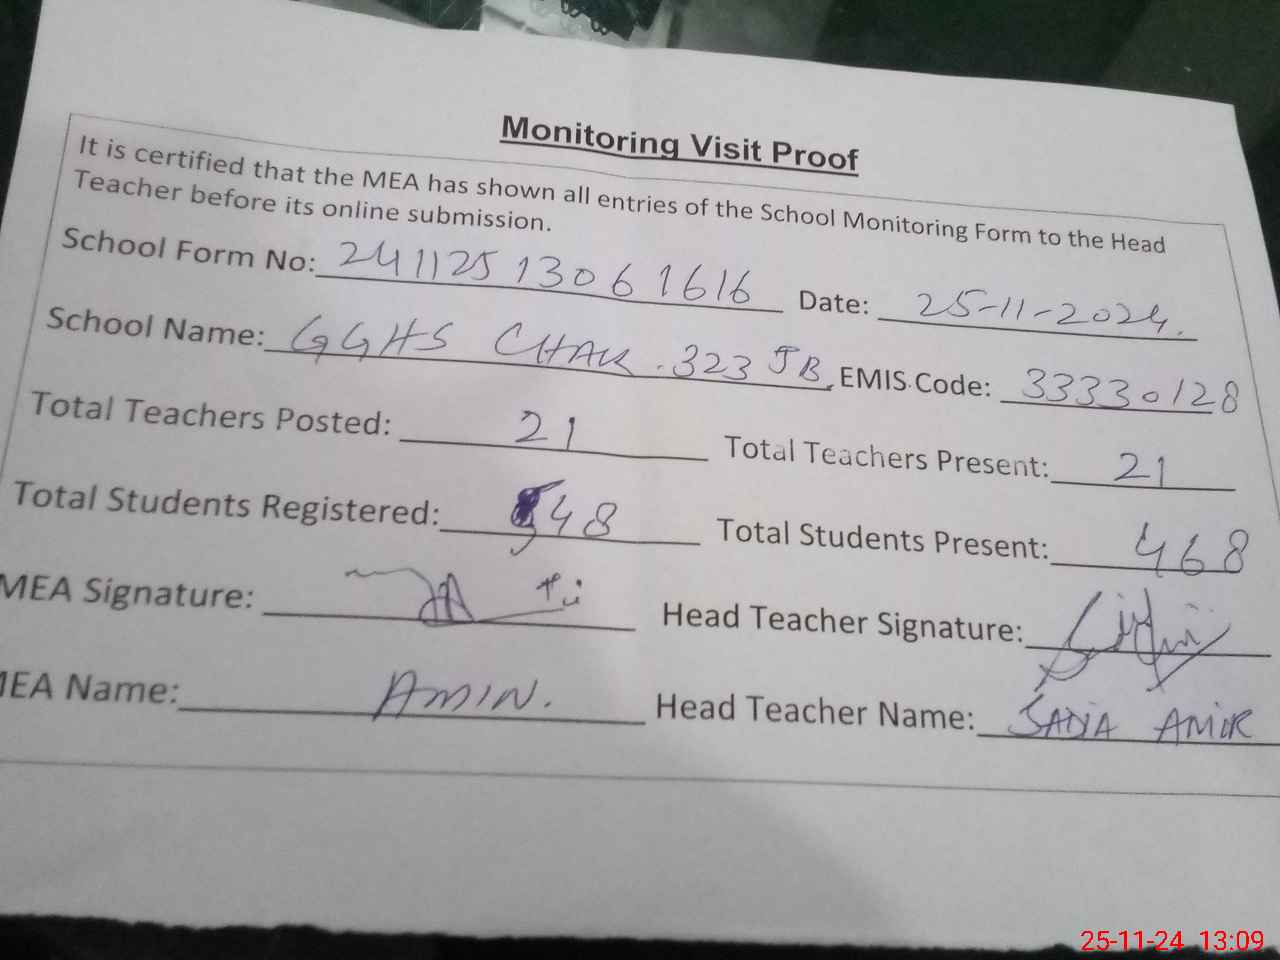 Monitoring Visit Proof
It is certified that the MEA has shown all entries of the School Monitoring Form to the Head
Teacher before its online submission.
School Form No: 24112513061616 Date: 25-11-2024.
School Name: GGHS CHAK. 323 JB EMIS Code: 33330128
Total Teachers Posted: 21 Total Teachers Present: 21
Total Students Registered: 548 Total Students Present: 468
MEA Signature: Head Teacher Signature:
MEA Name: AMIN. Head Teacher Name: SADIA AMIR
25-11-24 13:09